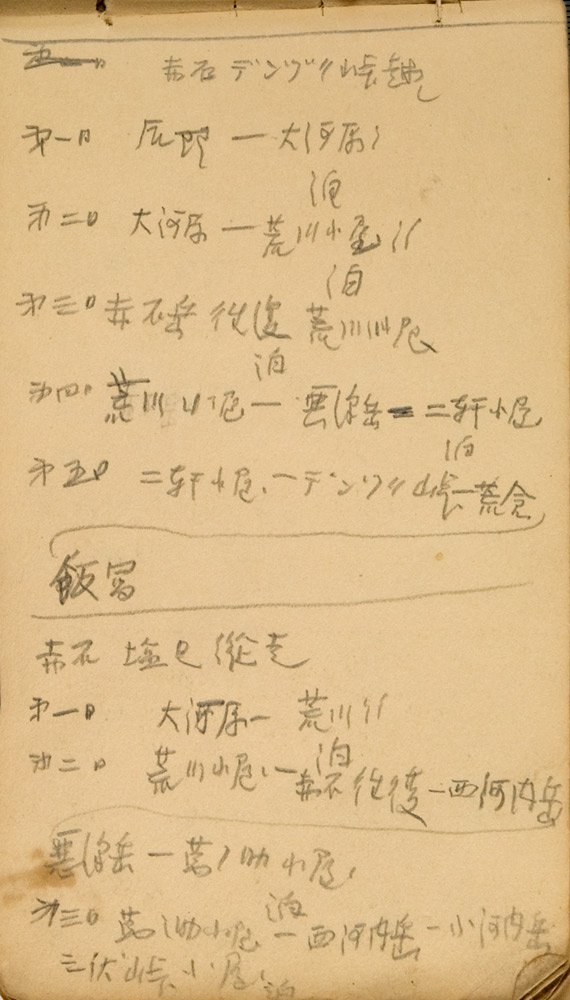 赤石デンヅク峠越
第一日 辰野 ― 大河原
泊
第二日 大河原 ― 荒川小屋
泊
第三日 赤石岳 往復 荒川小屋
泊
第四日 荒川小屋 ― 悪沢岳 ― 二軒小屋
泊
第五日 二軒小屋 ― デンヅク峠 ― 荒倉
飯富
赤石 塩見 縦走
第一日 大河原 ― 荒川
泊
第二日 荒川小屋 ― 赤石往復 ― 西河内岳
悪沢岳 ― 萬ノ助小屋
泊
第三日 萬ノ助小屋 ― 西河内岳 ― 小河内岳
三伏峠小屋
泊